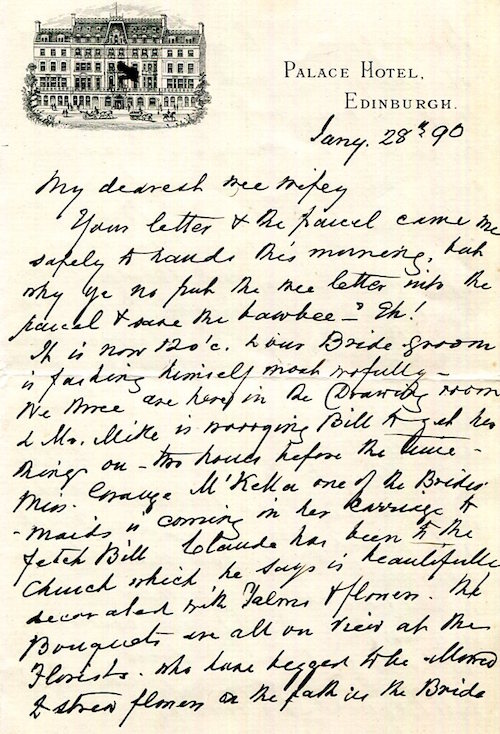 PALACE HOTEL,
EDINBURGH.
Jany. 28th 90
My dearest wee wifey
Your letter & the parcel came me
safely to hands this morning, but
why ye no put the wee letter into the
parcel & save the bawbee – Eh!
It is now 12 o'c. & our Bride-groom
is fashing himself most wofully –
We three are here in the Drawing room
& Mr. Mike is worrying Bill to get her
things on – two hours before the time –
Miss. McKellar one of the Brides-
-maids is coming in her carriage to
fetch Bill Claude has been to the
Church which he says is beautifully
decorated with Palms & flowers. The
Bouquets are all on view at the
Florists. who have begged to be allowed
to strew flowers on the path as the Bride